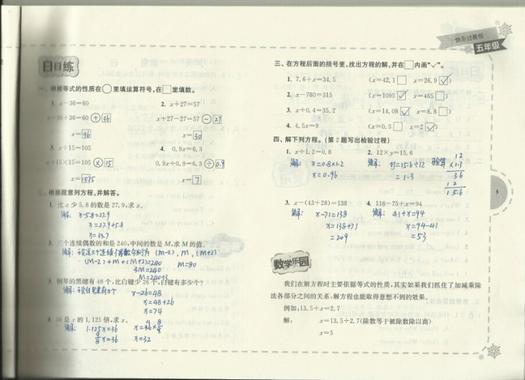 快乐过暑假
五年级
日日练
一、根据等式的性质在○里填运算符号,在□里填数。
1. x-36=60
2. x+27=57
x-36+36=60 + 36
x+27-27=57 - 27
x=96
x=30
3. x÷15=105
4. 0.9x=6.3
x÷15×15=105 × 15
0.9x÷0.9=6.3 ÷ 0.9
x=1575
x=7
二、根据题意列方程,并解答。
1. 比x少5.8的数是27.9,求x。
解: x-5.8=27.9
x=27.9+5.8
x=33.7
2. 三个连续偶数的和是240,中间的数是M,求M的值。
(M-2)+M+(M+2)=240
3M=240
M=80
3. 钢琴的黑键有48个,比白键少26个,白键有多少个?
x-26=48
x=48+26
x=74
4. 36是x的1.125倍,求x。
解: 1.125x=36
x=32
三、在方程后面的括号里,找出方程的解,并在□内画“✓”。
1. 7.6+x=34.5 (x=42.1□ x=26.9☑)
2. x-780=315 (x=1095☑ x=465□)
3. x+0.4=35.2
4. 4.5x=9 (x=0.5□ x=2☑)
四、解下列方程。(第2题写出检验过程)
1. x÷1.2=0.8
2. 12×x=15.6
解: x=0.8×1.2
x=0.96
=1.3
3. x-(43+28)=138
4. 116-75+x=94
解: x-71=138
解: 41+x=94
x=138+71
x=94-41
=209
=53
数学乐园
我们在解方程时主要依据等式的性质,其实如果我们抓住了加减乘除
法各部分之间的关系,解方程也能取得意想不到的效果。
例如:13.5÷x=2.7
解: x=13.5÷2.7(除数等于被除数除以商)
x=5